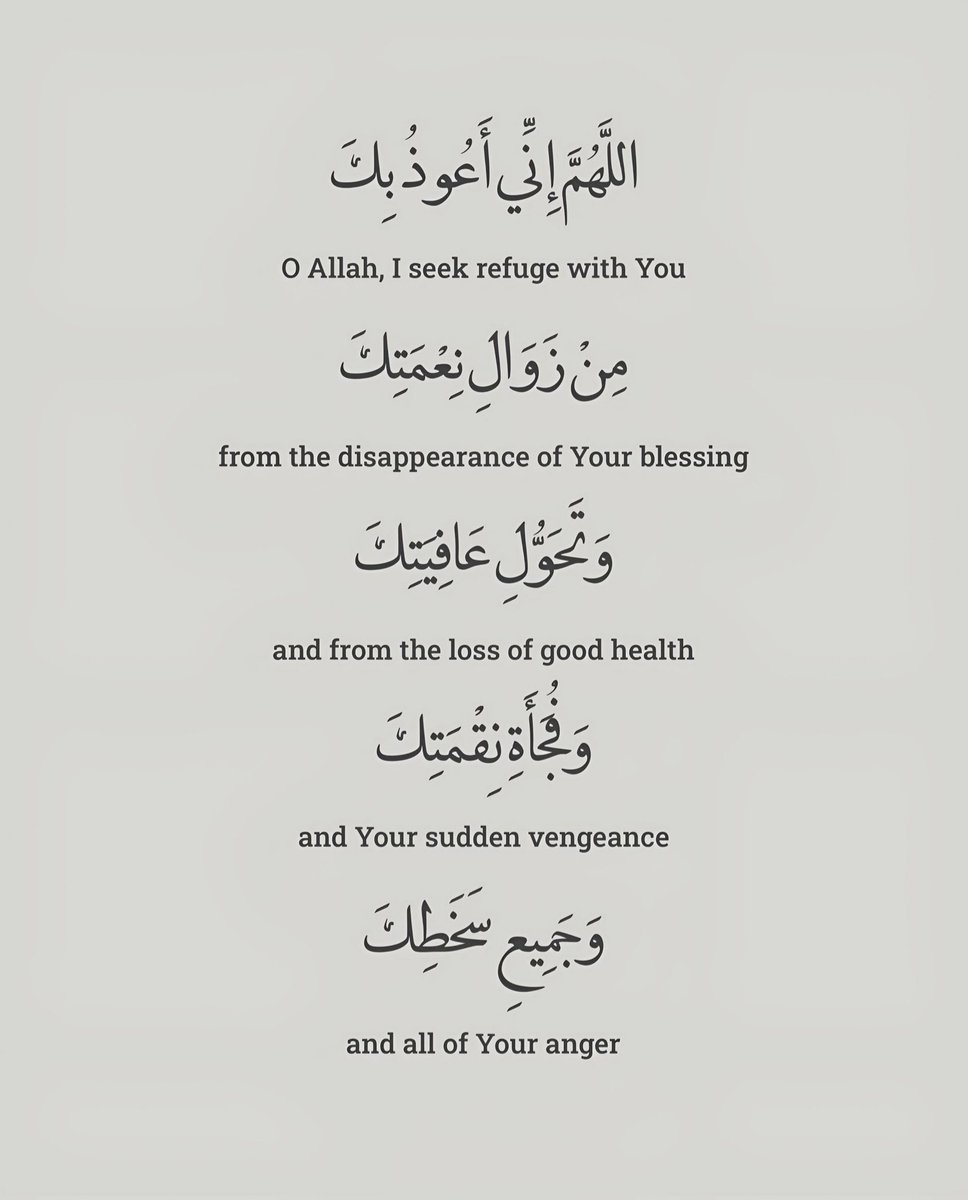 اللَّهُمَّ إِنِّي أَعُوذُ بِكَ
O Allah, I seek refuge with You
مِنْ زَوَالِ نِعْمَتِكَ
from the disappearance of Your blessing
وَتَحَوُّلِ عَافِيَتِكَ
and from the loss of good health
وَفُجَأَةِ نِقْمَتِكَ
and Your sudden vengeance
وَجَمِيعِ سَخَطِكَ
and all of Your anger